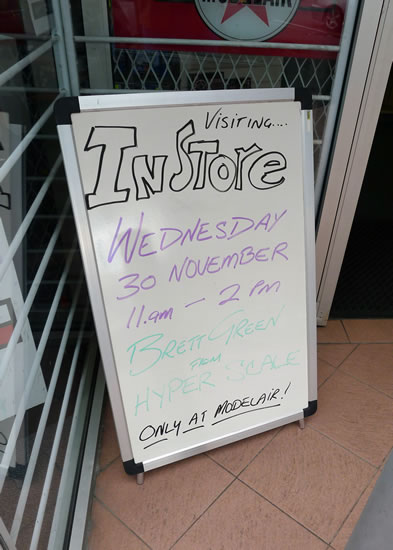 MODELAIR
VISITING....
INSTORE
WEDNESDAY
30 NOVEMBER
11.am – 2 pm
BRETT GREEN
FROM
HYPER SCALE
ONLY AT MODELAIR!